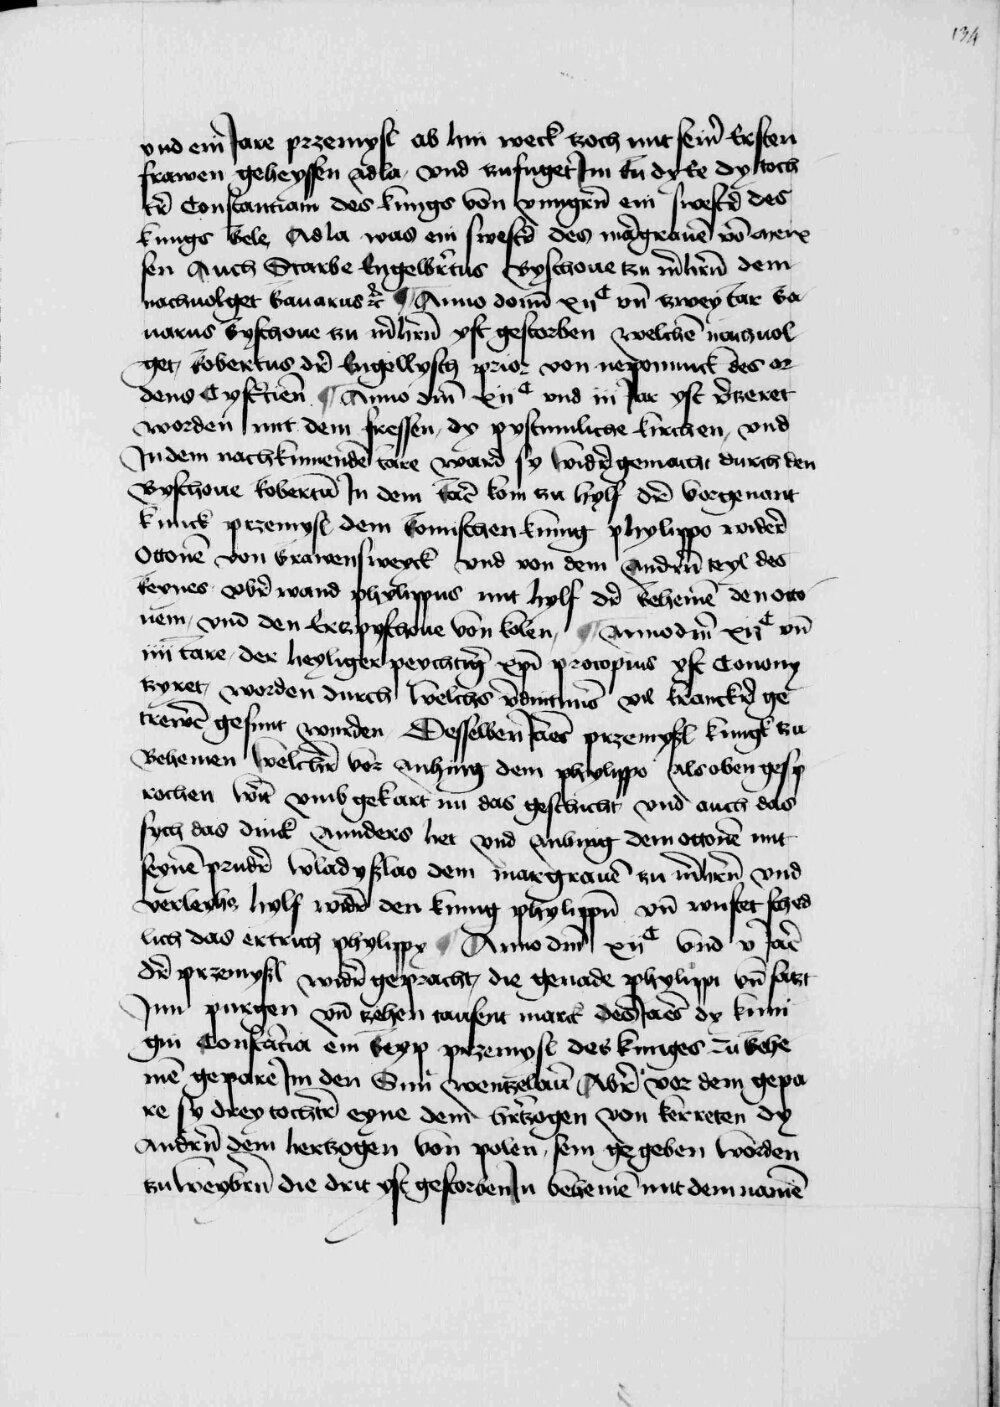 134
vnd ein Jare przemysl ab hin weck zoch mit seim̄ ersten
frawen geheyssen Adla, vnd zufuget Im zu dy Ee dy toch
tr̄ Constantiam des kunigs von vnngrn̄ ein swestr̄ des
kunigs bele Adla was ein swestr̄ des margrauen̄ vō meix
sen Auch Starbe Engelbr̄tus Byschoue zu m̄hrn̄ dem
nachuolget bauarus ⁊c̄ ¶ Anno domī xij C vn̄ zwey Iar Ba
uarus Byschoue zu m̄hrn̄ yst gestorben welchē nachuol
get, Robertus dr̄ Engellysch prior von nepomuck des or
dens Cystr̄cien̄ ¶ Anno dm̄ xij C vnd iij Iar yst v̄tzeret
worden mit dem fressen, dy pystumliche kirchen, vnd
In dem nachkumendē Iare ward sy widr̄ gemacht durch den
Byschoue Robertū In dem Iar̄ kom zu hylf dr̄ vorgenant
kunick przemysl dem Romischen kunig phylippo widr̄
Ottonē von brawensweyck vnd von dem Andrn̄ teyl des
Reynes vbr̄wand phylippus mit hylf dr̄ behemē den otto
nem, vnd den Ertzpyschoue von kolen, ¶ Anno dm̄ xij C vn̄
iiij Iare, der heyliger peychtiḡr xpī procopius yst Canony
zyret, worden durch welchs v̄dintnus̄ vil kranckr̄ ge
trewc̄ gesunt wurden Desselben Iars̄ przemyßl kungk zu
Behemen welchr̄ vor anhing dem phylippo als oben gesp
rochen wīt vmb gekart nu das geschicht vnd auch das
sych das dinck Annders het vnd anhing dem ottonē mit
seynē prudr̄ wladyßlao dem margrauē zu m̄hrn̄ vnd
verleyhs hylf widr̄ den kunig phylippū vn̄ wustet sched
lich das ertrich phylippy ¶ Anno dm̄ xij C vnd v Iar̄
dr̄ przemyßl widr̄ gepracht, die genade phylippi vn̄ satzt
Im purgen vn̄ zehen tausent marck des Iars̄ dy kuni
gin Constācia ein weyp przemysl des kuniges zu behe
mē geparē Im den Sun wentzelaū Abr̄ vor dem gepa
re sy drey tochtr̄ eyne dem hr̄tzogen von kerneten dy
Andrn̄ dem hertzogen von polen, sein gegeben worden
zu weybrn̄ die drit yst gestorben In behemē mit dem namē